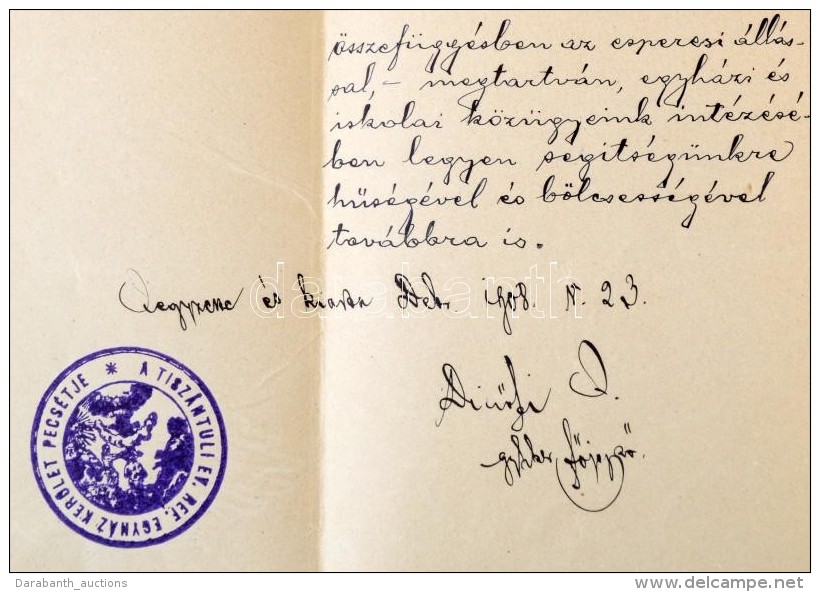 összefüggésben az esperesi állás-
sal, – megtartván, egyházi és
iskolai közügyeink intézésé-
ben legyen segitségünkre
hüségével és bölcsességével
továbbra is.
Jegyzette és kiadta Debr. 1908. V. 23.
Dicsőfi J.
egyhker. főjegyző.
A TISZÁNTULI EV. REF. EGYHÁZ KERÜLET PECSÉTJE *
darabanth
Darabanth_auctions
www.delcampe.net